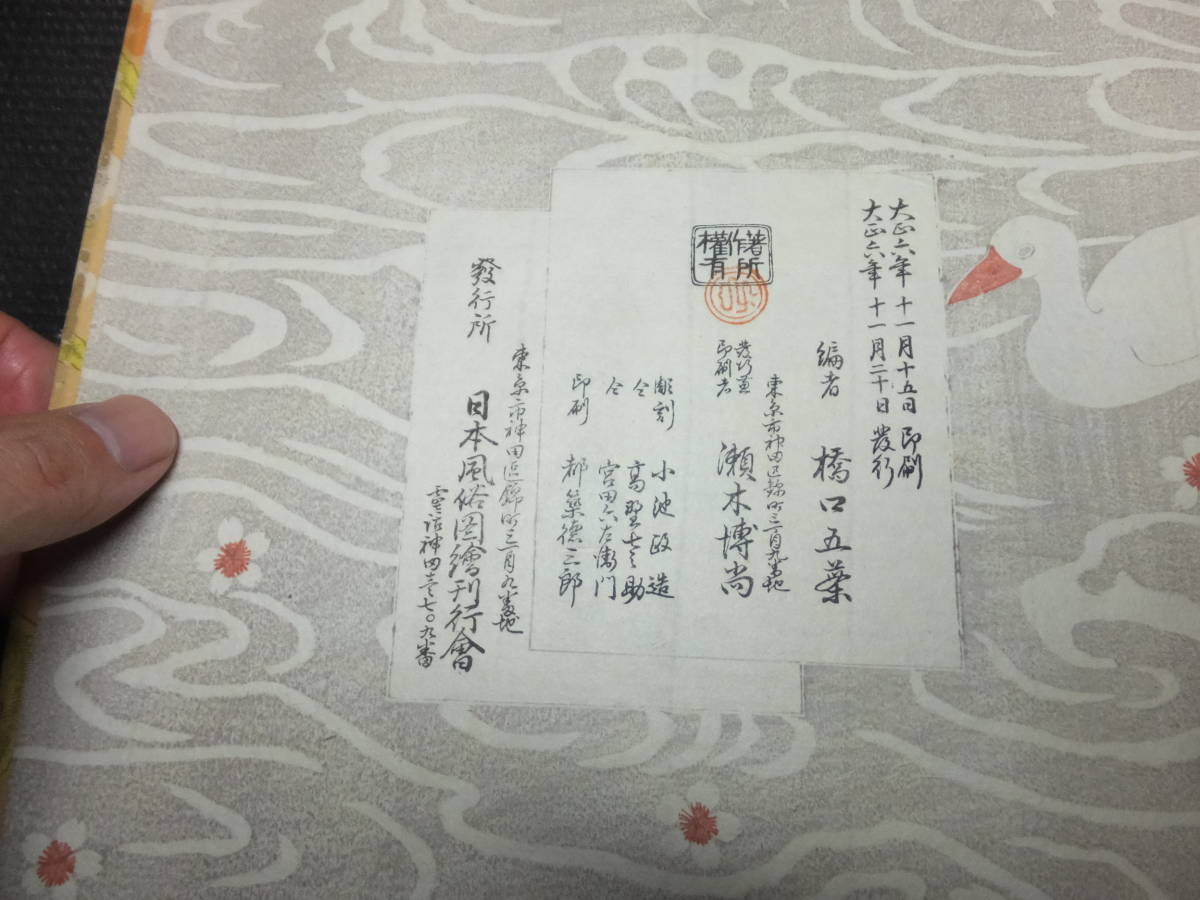 大正六年十一月十五日印刷
大正六年十一月二十日發行
編者 橋口五葉
東京市神田區錦町三丁目九番地
發行兼
印刷者 瀬木博尚
著作
權所有
彫刻 小池政造
仝 高野七之助
仝 宮田六左衛门
印刷 都築德三郎
東京市神田區錦町三丁目九番地
發行所 日本風俗圖繪刊行會
電話神田壱七〇九番